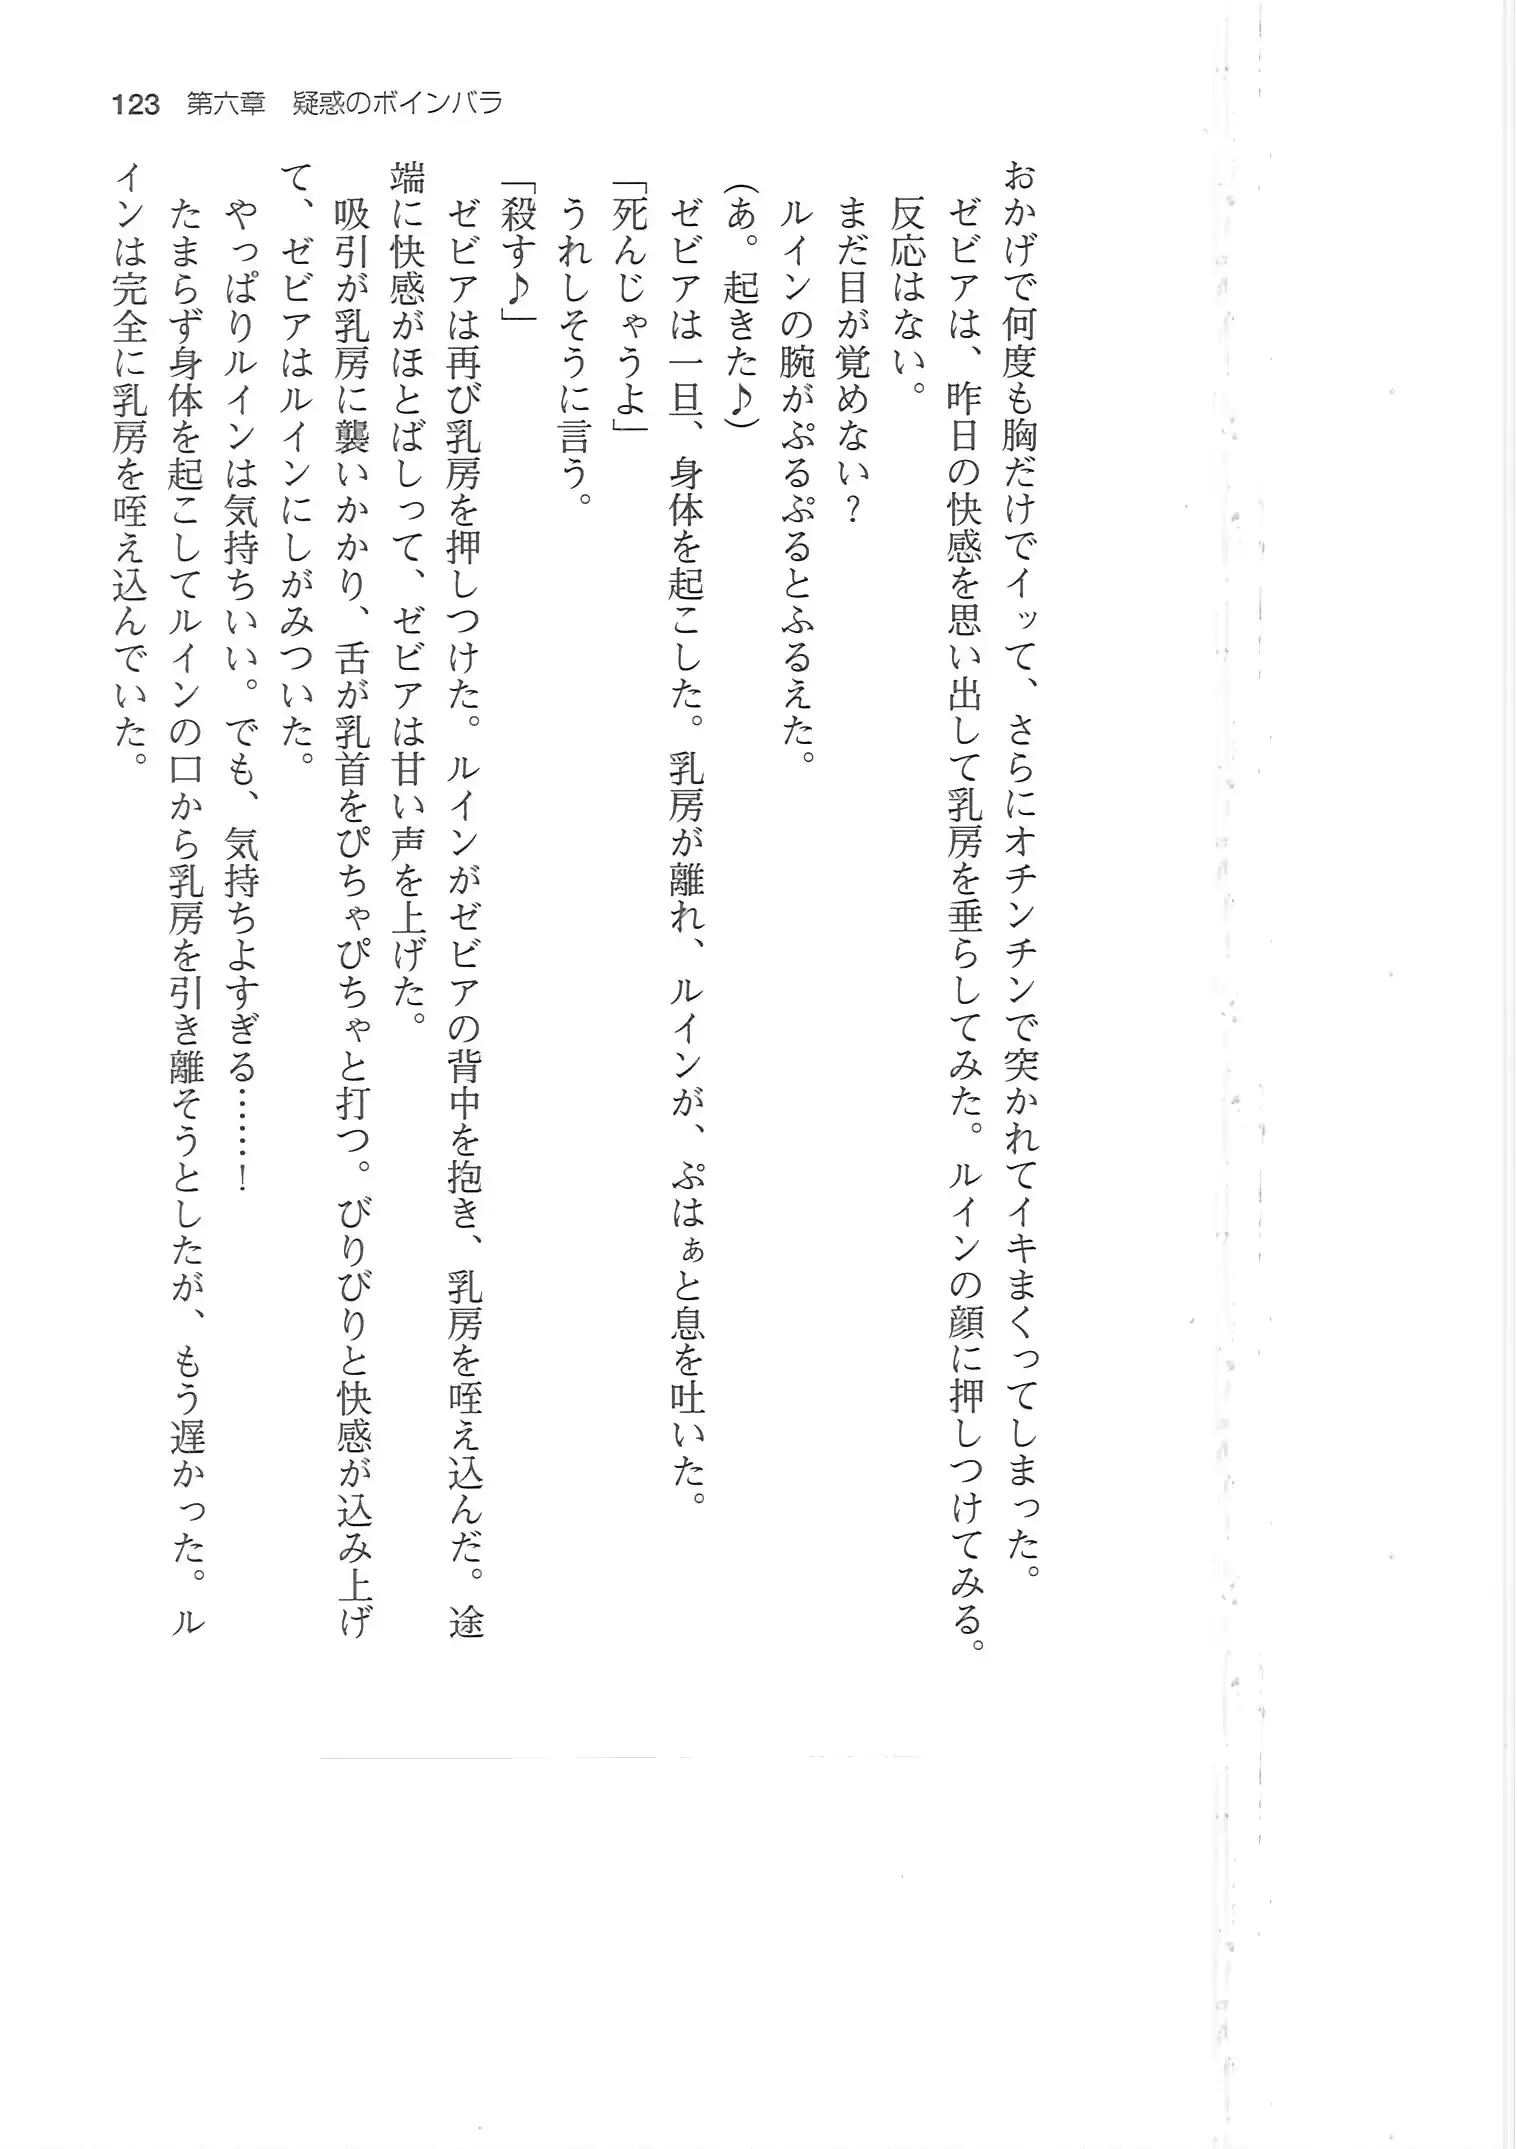 123 第六章 疑惑のボインバラ
おかげで何度も胸だけでイッて、さらにオチンチンで突かれてイキまくってしまった。
ゼビアは、昨日の快感を思い出して乳房を垂らしてみた。ルインの顔に押しつけてみる。
反応はない。
まだ目が覚めない？
ルインの腕がぷるぷるとふるえた。
（あ。起きた♪）
ゼビアは一旦、身体を起こした。乳房が離れ、ルインが、ぷはぁと息を吐いた。
「死んじゃうよ」
うれしそうに言う。
「殺す♪」
ゼビアは再び乳房を押しつけた。ルインがゼビアの背中を抱き、乳房を咥え込んだ。途
端に快感がほとばしって、ゼビアは甘い声を上げた。
吸引が乳房に襲いかかり、舌が乳首をぴちゃぴちゃと打つ。びりびりと快感が込み上げ
て、ゼビアはルインにしがみついた。
やっぱりルインは気持ちいい。でも、気持ちよすぎる……！
たまらず身体を起こしてルインの口から乳房を引き離そうとしたが、もう遅かった。ル
インは完全に乳房を咥え込んでいた。